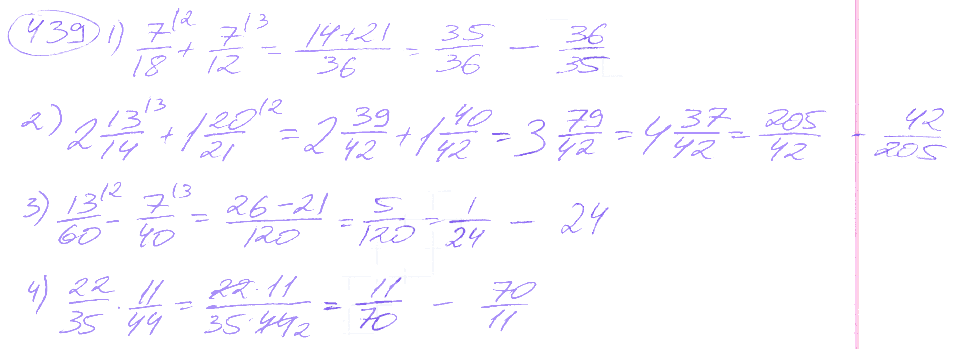 439 1) 7/18 \2 + 7/12 \3 = (14+21)/36 = 35/36 — 36/35
2) 2 13/14 \3 + 1 20/21 \2 = 2 39/42 + 1 40/42 = 3 79/42 = 4 37/42 = 205/42 - 42/205
3) 13/60 \2 - 7/40 \3 = (26-21)/120 = 5/120 = 1/24 — 24
4) 22/35 · 11/44 = (22·11)/(35·44 2) = 11/70 — 70/11